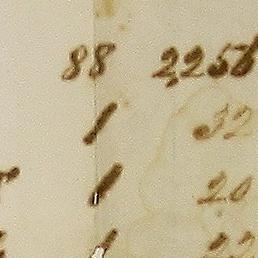 88 2256
1 32
1 20
1 22